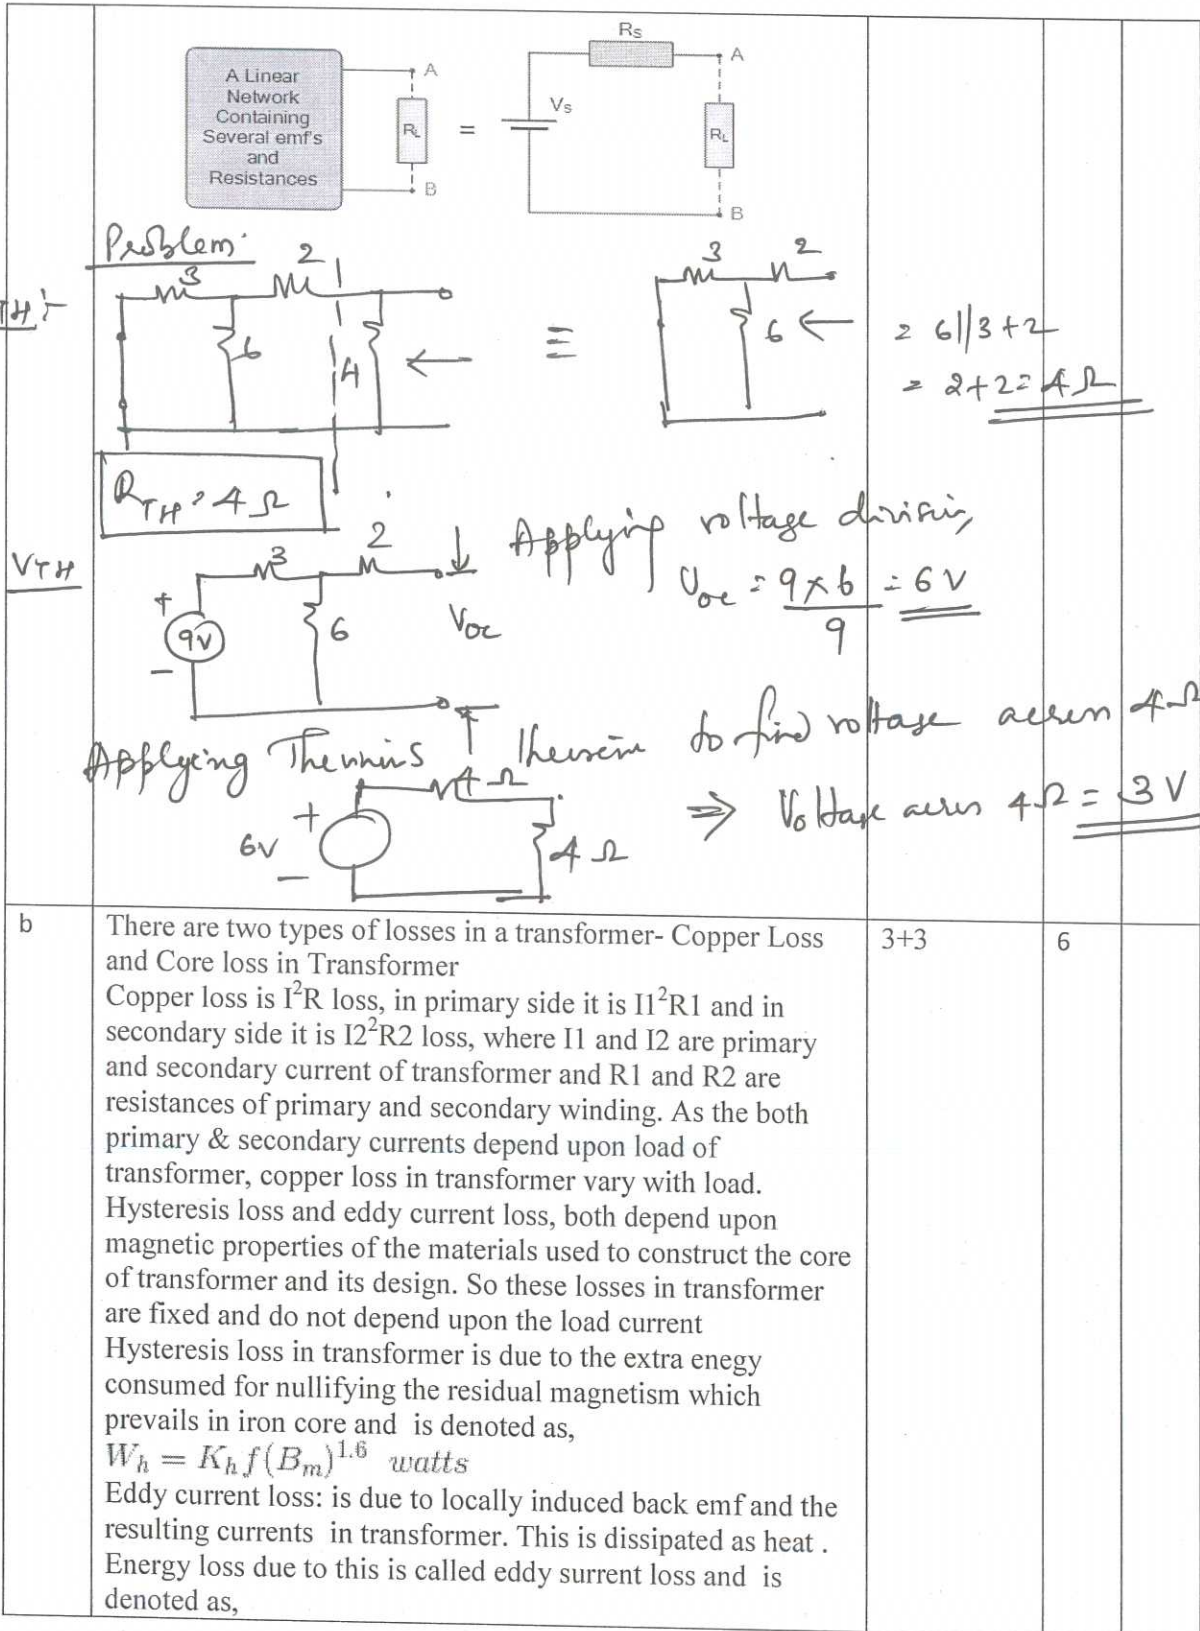 A Linear
Network
Containing
Several emf's
and
Resistances
A
RL
B
=
Rs
Vs
A
RL
B
Problem:
TH :-
3
2
6
4
≡
3
2
6
= 6||3+2
= 2+2=4Ω
RTH = 4Ω
VTH
3
2
+
9V
-
6
Voc
Applying voltage division,
Voc = 9×6 = 6V
9
Applying Thevnins Theorem to find voltage across 4Ω
4Ω
+
6V
-
4Ω
⇒ Voltage across 4Ω = 3V
b
There are two types of losses in a transformer- Copper Loss
3+3
6
and Core loss in Transformer
Copper loss is I²R loss, in primary side it is I1²R1 and in
secondary side it is I2²R2 loss, where I1 and I2 are primary
and secondary current of transformer and R1 and R2 are
resistances of primary and secondary winding. As the both
primary & secondary currents depend upon load of
transformer, copper loss in transformer vary with load.
Hysteresis loss and eddy current loss, both depend upon
magnetic properties of the materials used to construct the core
of transformer and its design. So these losses in transformer
are fixed and do not depend upon the load current
Hysteresis loss in transformer is due to the extra enegy
consumed for nullifying the residual magnetism which
prevails in iron core and is denoted as,
W_h = K_h f(B_m)^1.6 watts
Eddy current loss: is due to locally induced back emf and the
resulting currents in transformer. This is dissipated as heat .
Energy loss due to this is called eddy surrent loss and is
denoted as,